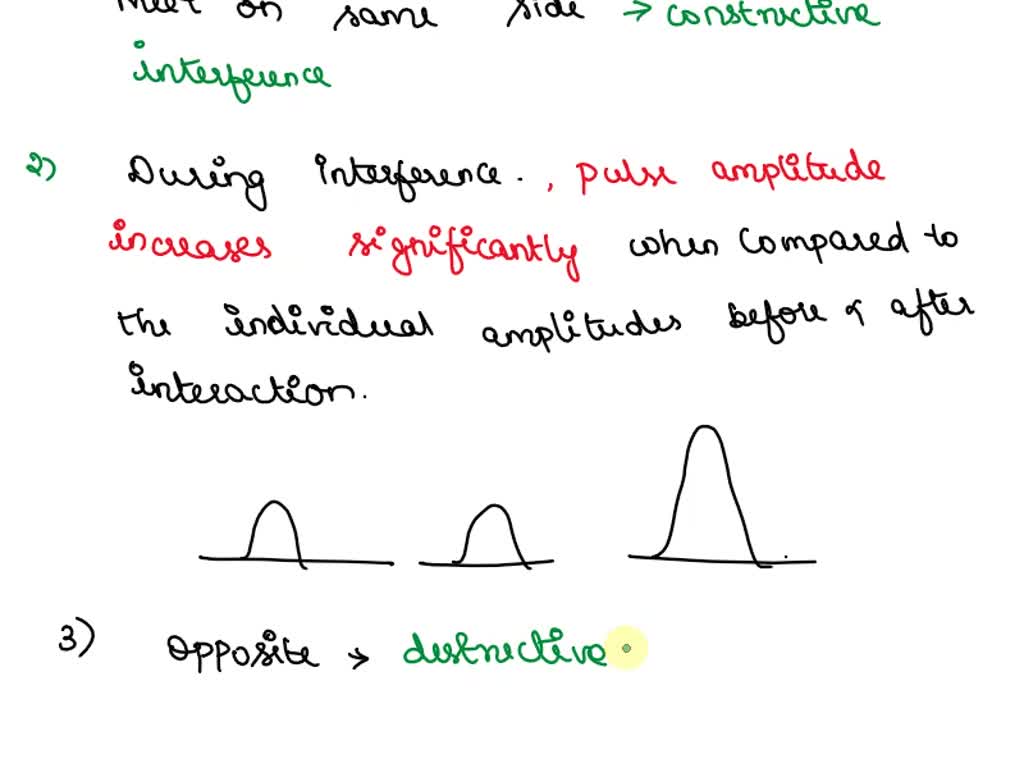 meet on same side → constructive
interference
2) During interference. , pulse amplitude
increases significantly when compared to
the individual amplitudes before & after
interaction.
3) opposite → destructive